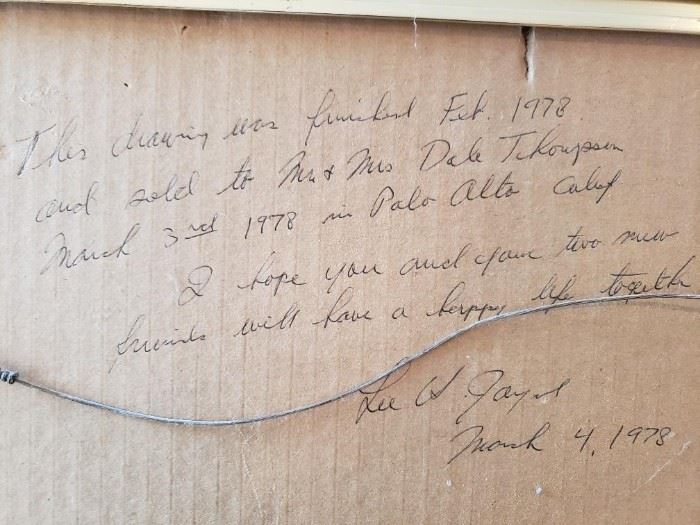 This drawing was finished Feb. 1978
and sold to Mr & Mrs Dale Thompson
March 3rd 1978 in Palo Alto Calif
I hope you and your two new
friends will have a happy life together
Lee
March 4, 1978